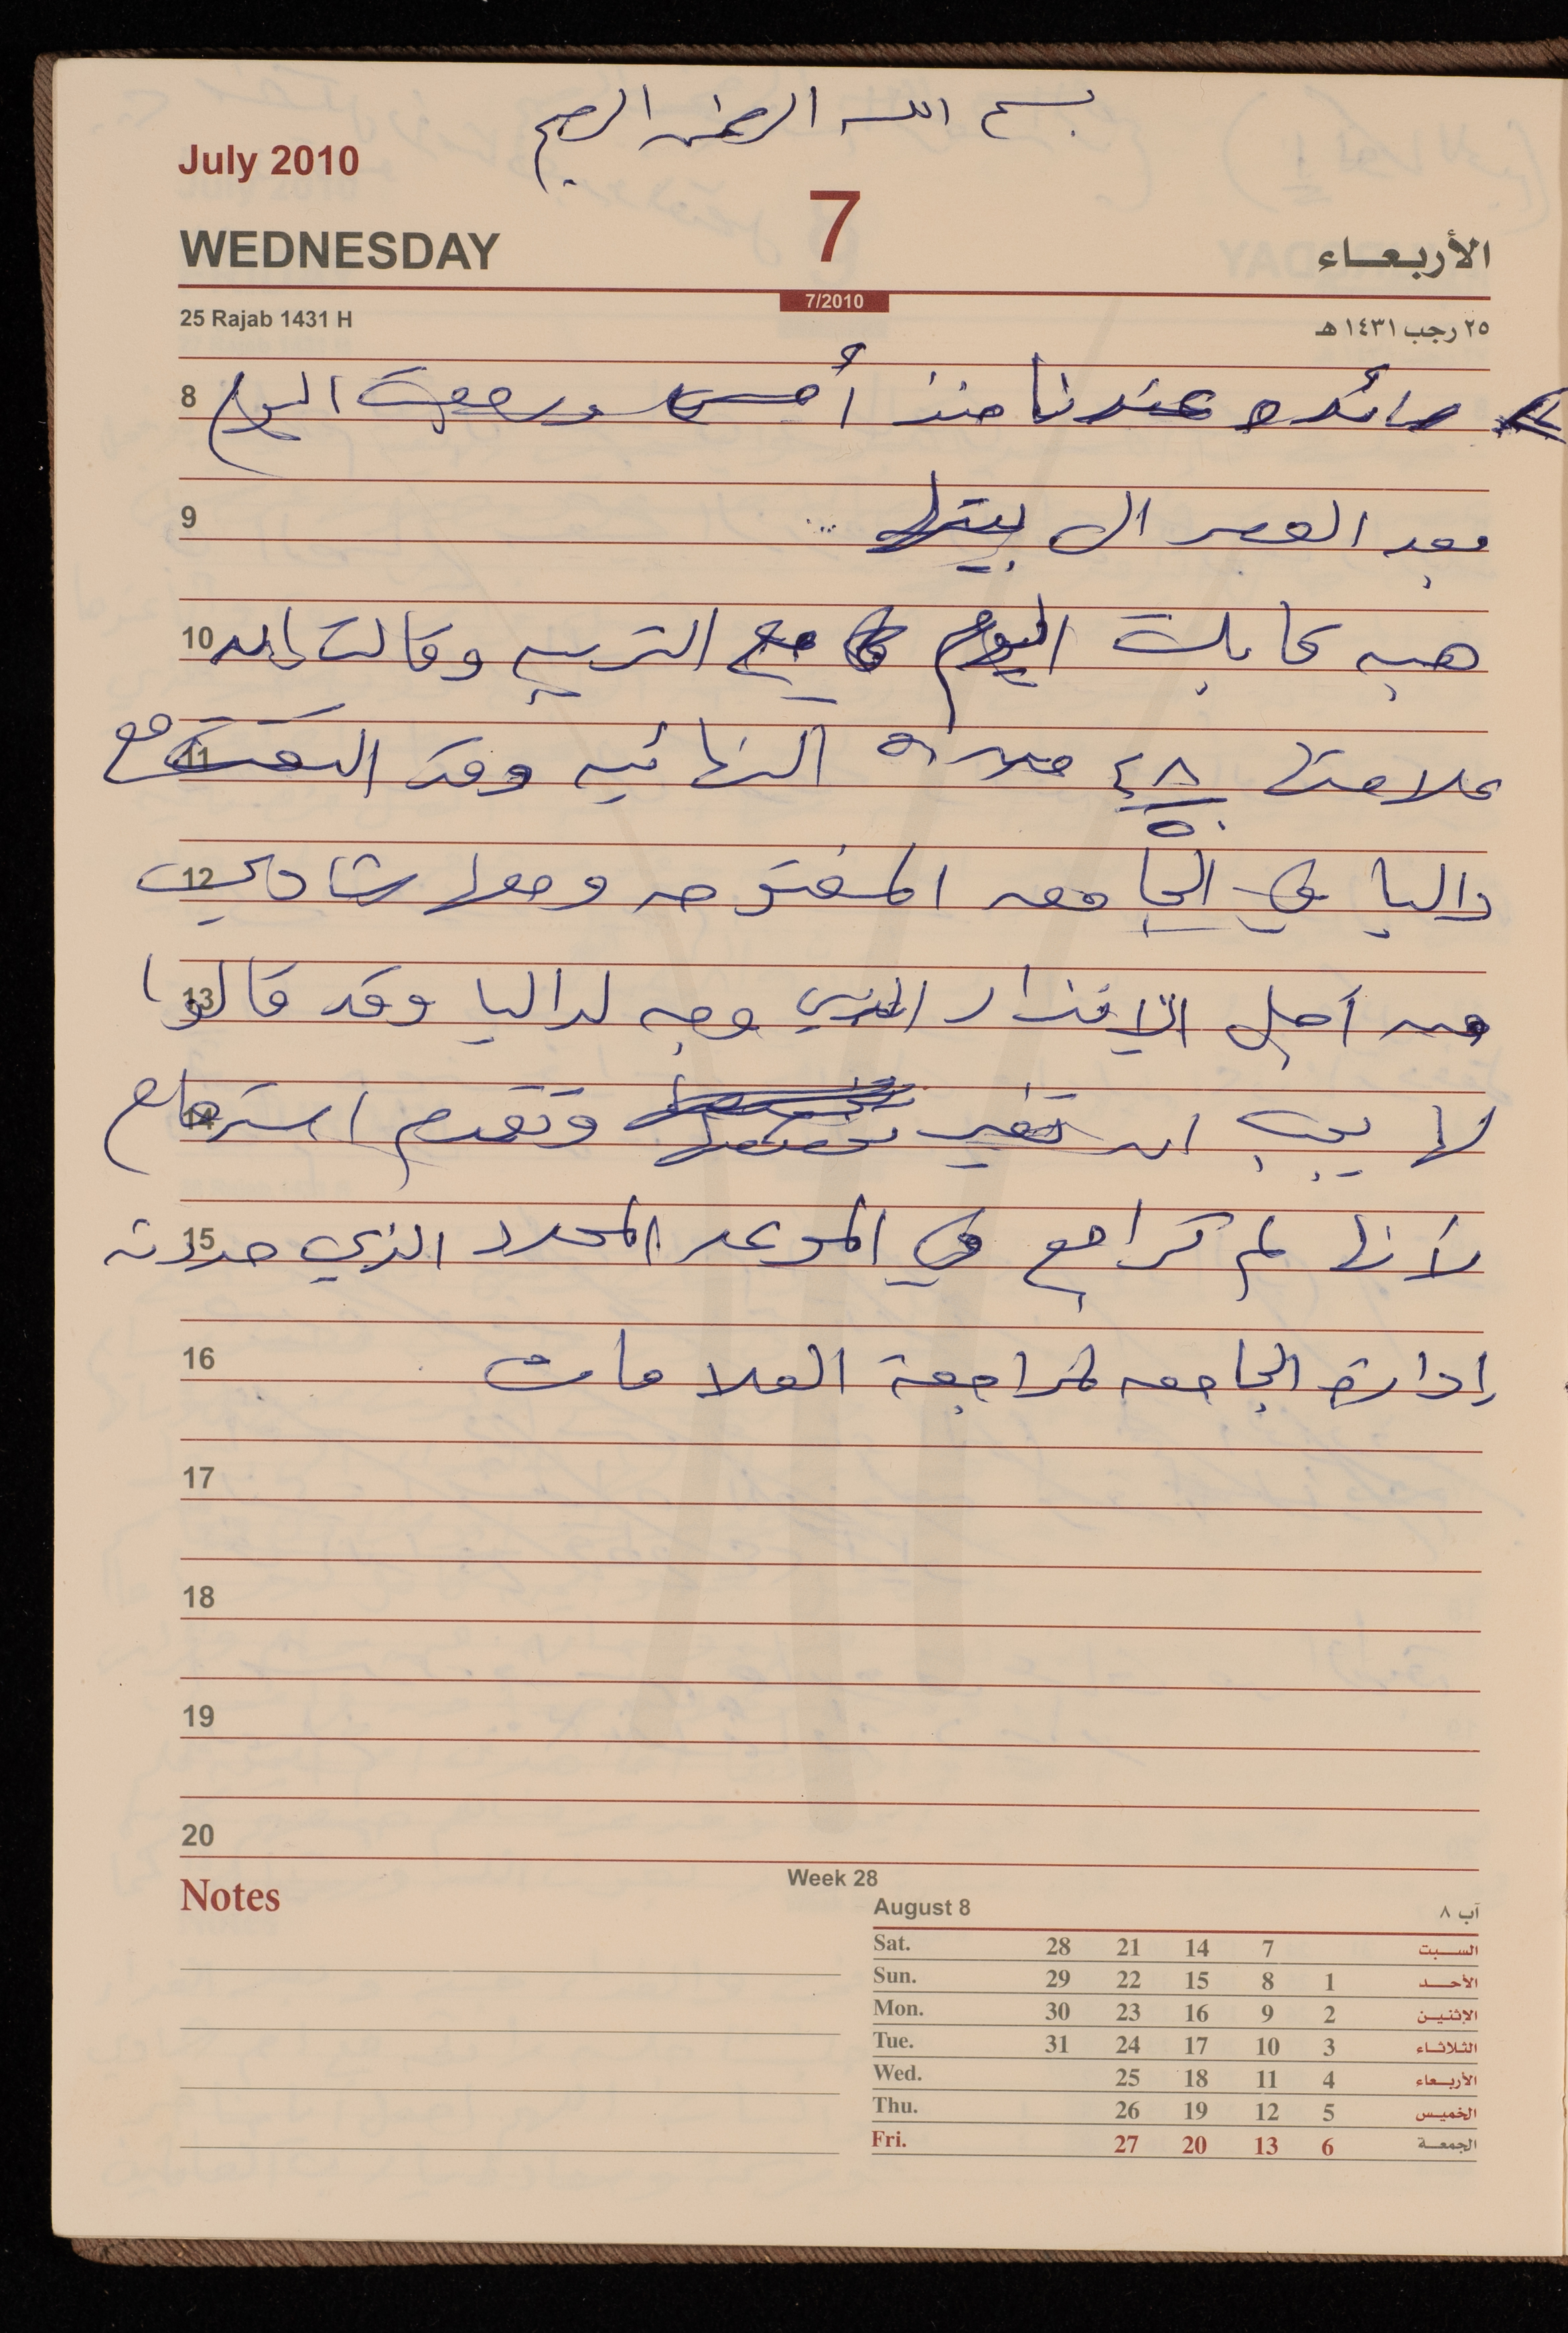 بسم الله الرحمن الرحيم
July 2010
7
WEDNESDAY
الأربعاء
7/2010
25 Rajab 1431 H
٢٥ رجب ١٤٣١ هـ
8 رائده عندنا منذ أمس ورجعت اليوم
9 بعد العصر الى بيتها ...
10 هبه كا بلت اليوم مع التربيه وقالت بانه
11 علامتها ٤٨ من ٥٠ النهائيه وقد التقت مع
12 داليا في الجامعه المفتوحه ومعها شادي
13 من أجل الانذار الذي وجه لداليا وقد قالوا
14 لها يجب ان تغير تخصصها وتقدم استرحام
15 لأنها لم تراجع في الموعد المحدد الذي حددته
16 إدارة الجامعه لمراجعة العلامات
17
18
19
20
Notes
Week 28
August 8
آب ٨
Sat. 28 21 14 7 السبت
Sun. 29 22 15 8 1 الأحد
Mon. 30 23 16 9 2 الإثنين
Tue. 31 24 17 10 3 الثلاثاء
Wed. 25 18 11 4 الأربعاء
Thu. 26 19 12 5 الخميس
Fri. 27 20 13 6 الجمعة